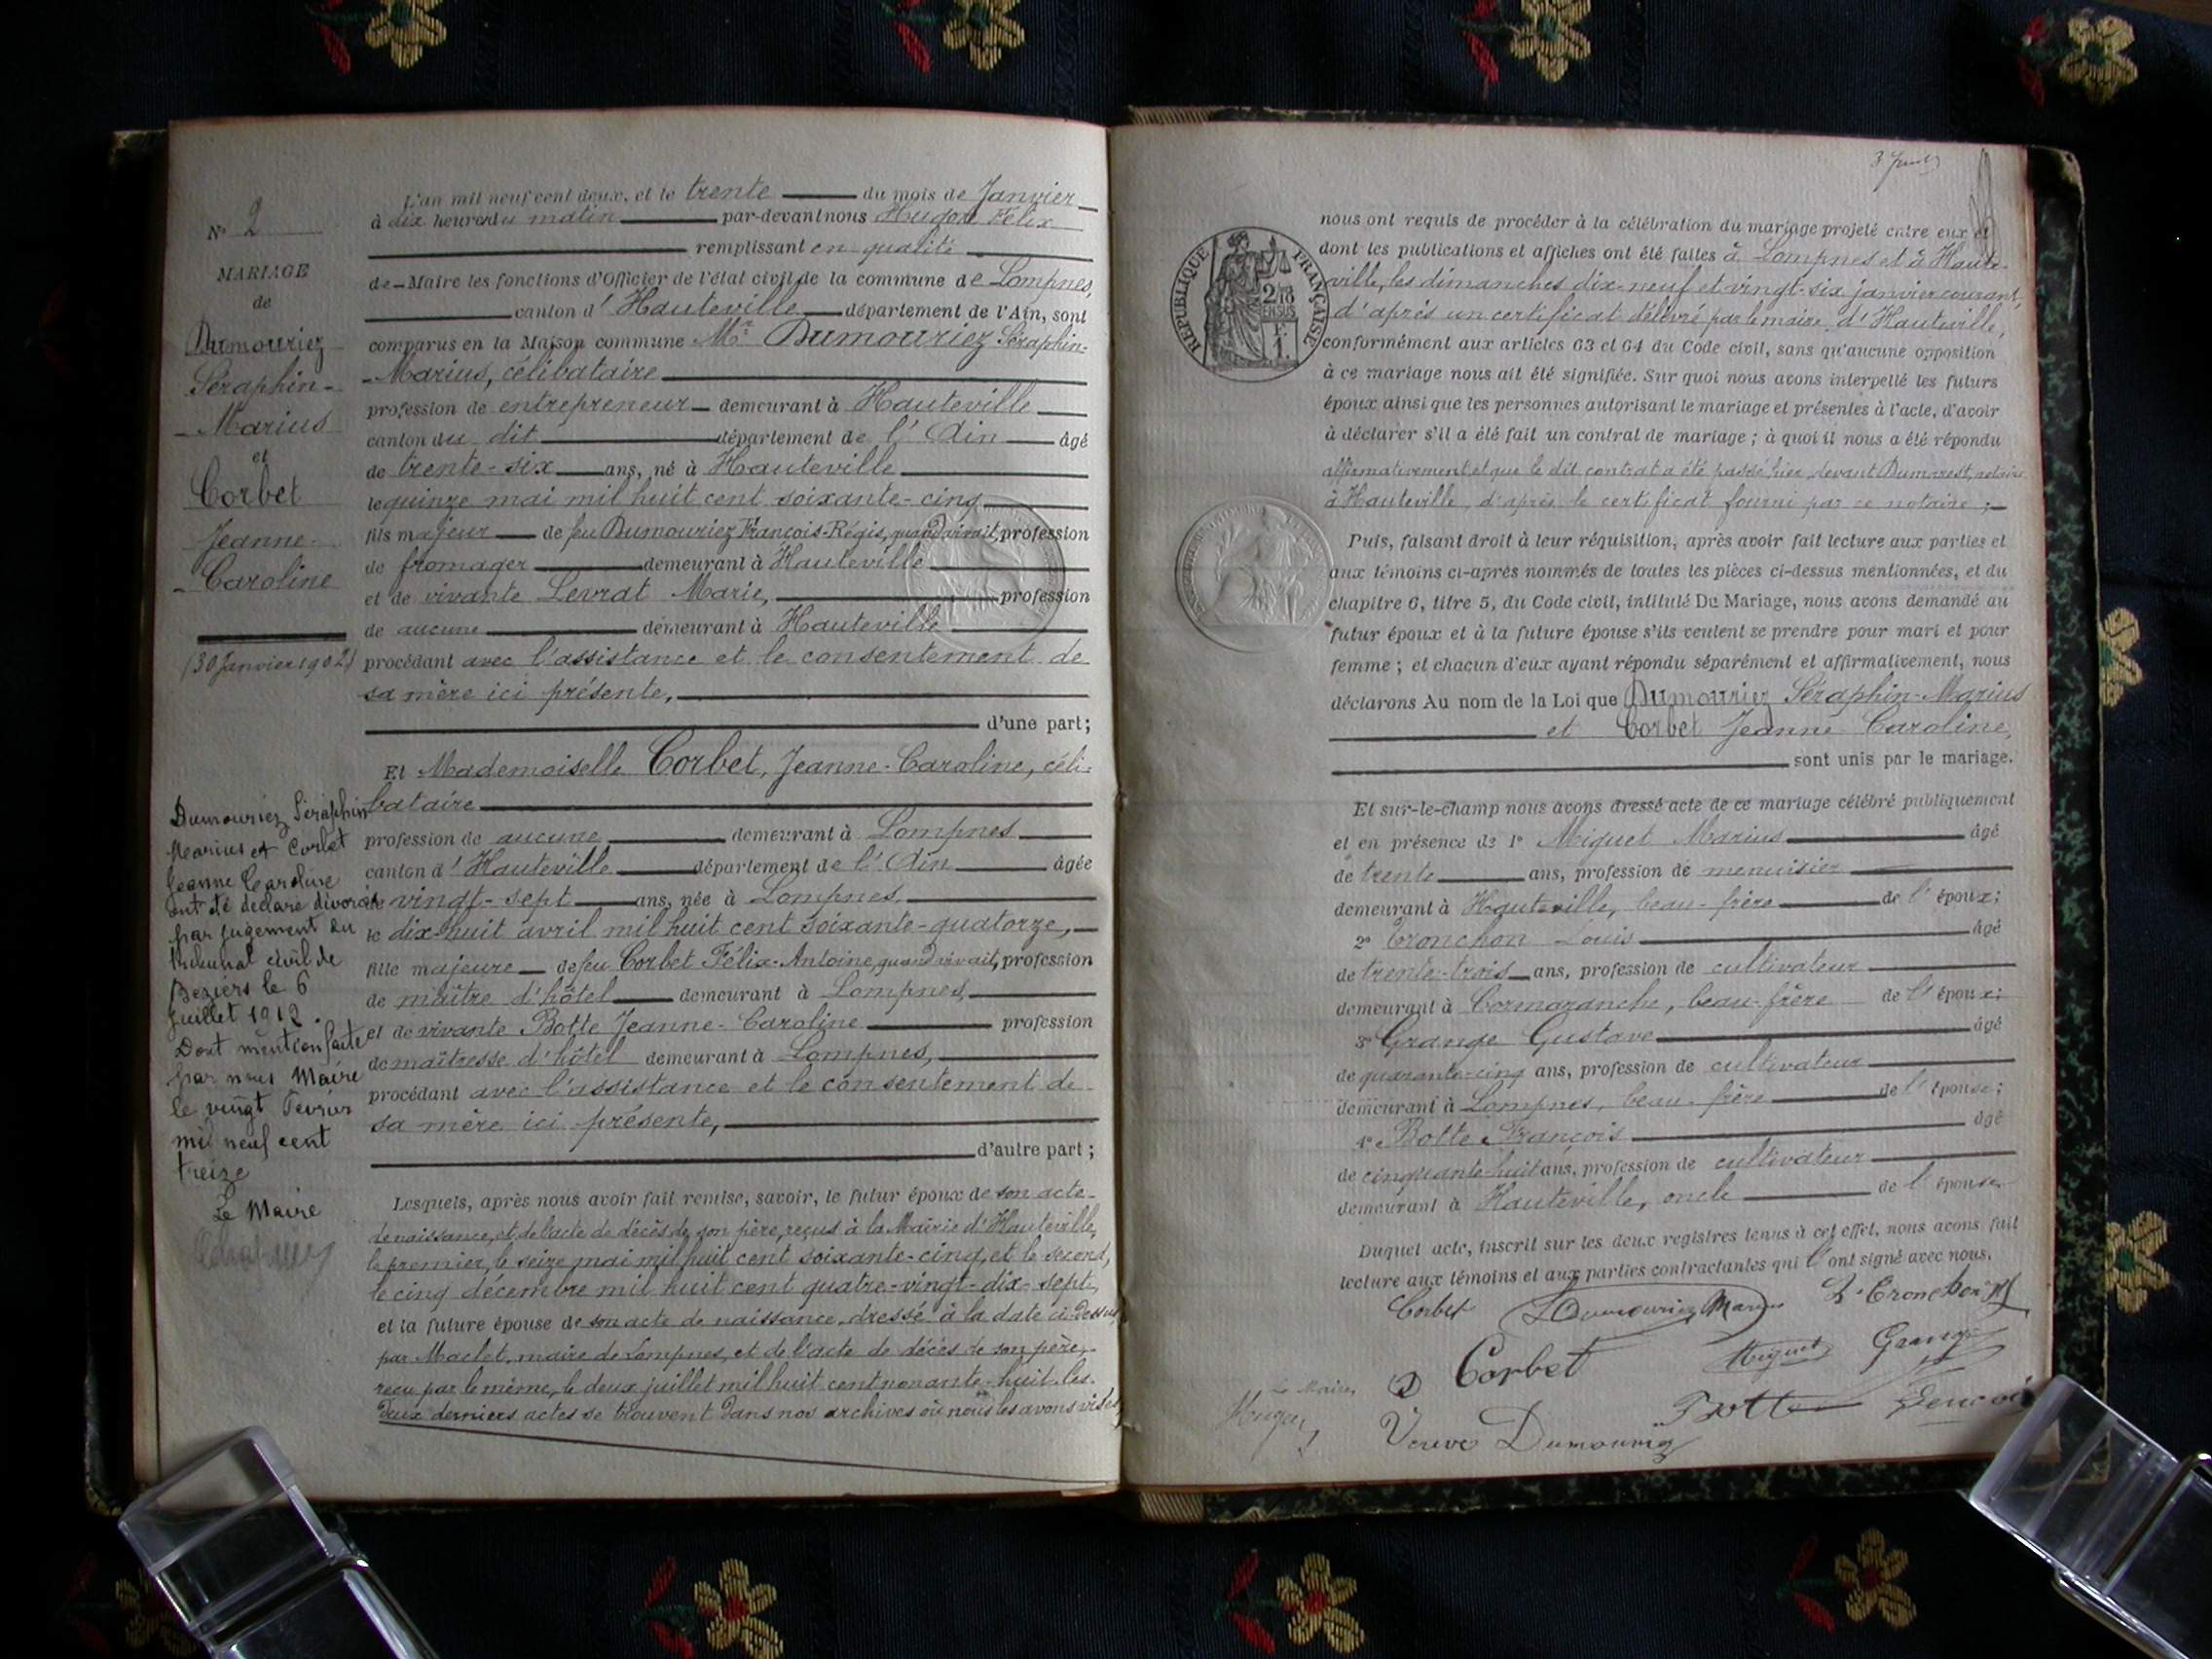 N° 2
MARIAGE
de
Dumouriez
Séraphin-
- Marius
et
Corbet
Jeanne-
- Caroline
(30 Janvier 1902)
Dumouriez Séraphin
Marius et Corbet
Jeanne Caroline
ont été déclaré divorcés
par jugement du
tribunal civil de
Beziers le 6
juillet 1912.
Dont mention faite
par nous Maire
le vingt Fevrier
mil neuf cent
treize
Le Maire
L'an mil neuf cent deux, et le trente du mois de Janvier
à dix heures du matin par-devant nous Hugon Félix
remplissant en qualité
de-Maire les fonctions d'Officier de l'état civil de la commune de Lompnes,
canton d'Hauteville département de l'Ain, sont
comparus en la Maison commune Mr Dumouriez Séraphin-
- Marius, célibataire
profession de entrepreneur demeurant à Hauteville
canton du dit département de l'Ain âgé
de trente-six ans, né à Hauteville
le quinze mai mil huit cent soixante-cinq
fils majeur de feu Dumouriez François-Régis, quand vivait, profession
de fromager demeurant à Hauteville
et de vivante Levrat Marie, profession
de aucune demeurant à Hauteville
procédant avec l'assistance et le consentement de
sa mère ici présente,
d'une part;
Et Mademoiselle Corbet, Jeanne-Caroline, céli-
bataire
profession de aucune demeurant à Lompnes
canton d'Hauteville département de l'Ain âgée
de vingt-sept ans, née à Lompnes,
le dix-huit avril mil huit cent soixante-quatorze,
fille majeure de feu Corbet Félix-Antoine, quand vivait, profession
de maître d'hôtel demeurant à Lompnes,
et de vivante Botte Jeanne-Caroline profession
de maîtresse d'hôtel demeurant à Lompnes,
procédant avec l'assistance et le consentement de
sa mère ici présente,
d'autre part;
Lesquels, après nous avoir fait remise, savoir, le futur époux de son acte-
de naissance, et de l'acte de décès de son père, reçus à la Mairie d'Hauteville,
le premier, le seize mai mil huit cent soixante-cinq, et le second,
le cinq décembre mil huit cent quatre-vingt-dix-sept,
et la future épouse de son acte de naissance, dressé à la date ci-dessus,
par Maclet, maire de Lompnes, et de l'acte de décès de son père,
reçu par le même, le deux juillet mil huit cent nonante-huit. Les
deux derniers actes se trouvent dans nos archives où nous les avons visés
RÉPUBLIQUE FRANÇAISE
2/10
EN SUS
1 F.
nous ont requis de procéder à la célébration du mariage projeté entre eux et
dont les publications et affiches ont été faites à Lompnes et à Haute-
ville, les dimanches dix-neuf et vingt-six janvier courant,
d'après un certificat délivré par le maire d'Hauteville,
conformément aux articles 63 et 64 du Code civil, sans qu'aucune opposition
à ce mariage nous ait été signifiée. Sur quoi nous avons interpellé les futurs
époux ainsi que les personnes autorisant le mariage et présentes à l'acte, d'avoir
à déclarer s'il a été fait un contrat de mariage; à quoi il nous a été répondu
affirmativement, et que le dit contrat a été passé hier, devant Dumarest, notaire
à Hauteville, d'après le certificat fourni par ce notaire;
Puis, faisant droit à leur réquisition, après avoir fait lecture aux parties et
aux témoins ci-après nommés de toutes les pièces ci-dessus mentionnées, et du
chapitre 6, titre 5, du Code civil, intitulé Du Mariage, nous avons demandé au
futur époux et à la future épouse s'ils veulent se prendre pour mari et pour
femme; et chacun d'eux ayant répondu séparément et affirmativement, nous
déclarons Au nom de la Loi que Dumouriez Séraphin-Marius
et Corbet Jeanne Caroline,
sont unis par le mariage.
Et sur-le-champ nous avons dressé acte de ce mariage célébré publiquement
et en présence de 1° Miguet Marius âgé
de trente ans, profession de menuisier
demeurant à Hauteville, beau-frère de l'époux;
2° Tronchon Louis âgé
de trente-trois ans, profession de cultivateur
demeurant à Cormaranche, beau-frère de l'époux;
3° Grange Gustave âgé
de quarante-cinq ans, profession de cultivateur
demeurant à Lompnes, beau-frère de l'épouse;
4° Botte François âgé
de cinquante-huit ans, profession de cultivateur
demeurant à Hauteville, oncle de l'épouse.
Duquel acte, inscrit sur les deux registres tenus à cet effet, nous avons fait
lecture aux témoins et aux parties contractantes qui l'ont signé avec nous.
Corbet Dumouriez Marius L. Tronchon
Corbet Miguet Grange
Le Maire,
Hugon Veuve Dumouriez Botte